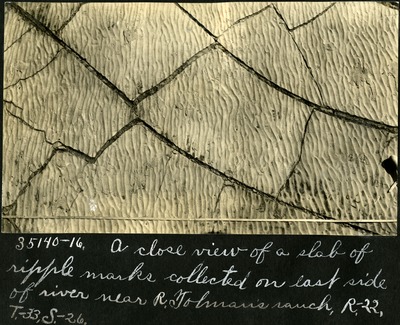 35140-16. A close view of a slab of
ripple marks collected on east side
of river near R. Tolman's ranch, R-22,
T-33, S-26.